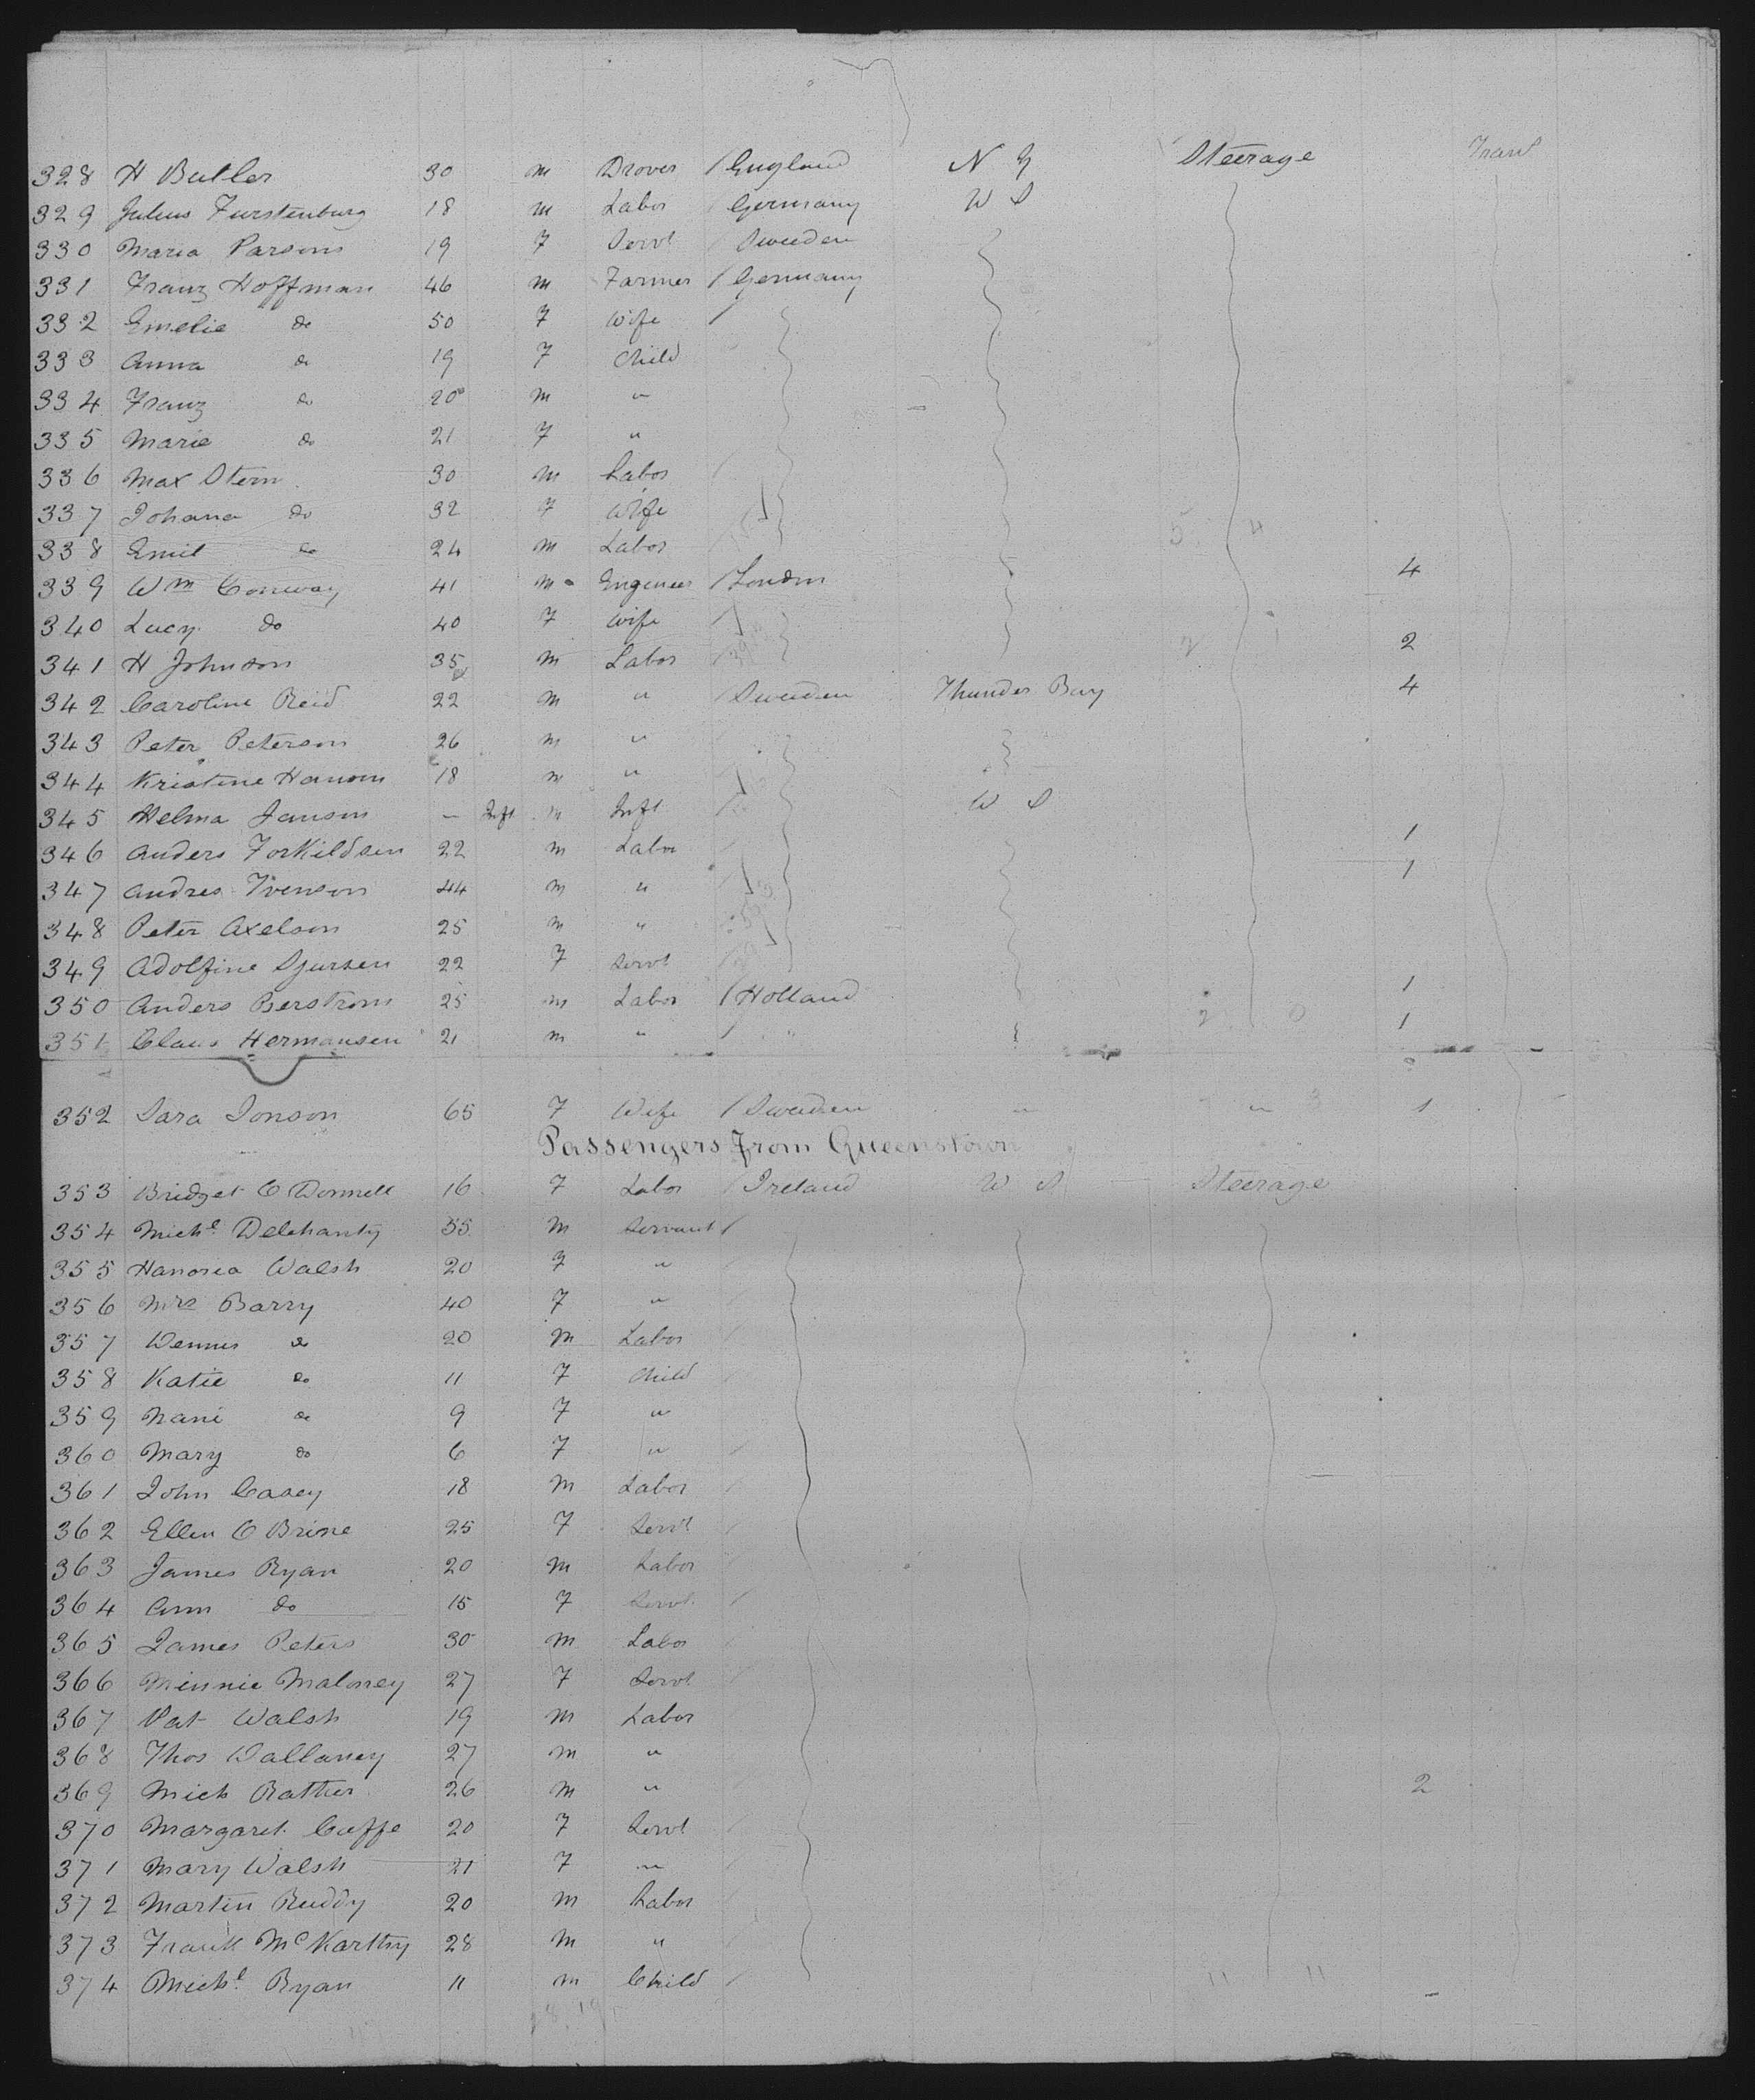 328 H Butler 30 m Drover / England N Y Steerage Trans
329 Julius Furstenburg 18 m Labor / Germany W S
330 Maria Parsons 19 F Servt / Sweeden
331 Franz Hoffman 46 m Farmer / Germany
332 Emelie do 50 F Wife /
333 Anna do 19 F Child
334 Franz do 20 m "
335 Marie do 21 F "
336 Max Stern 30 m Labor /
337 Johana do 32 F Wife
338 Emil do 24 m Labor 5 4
339 Wm Conway 41 m Engineer / London 4
340 Lucy do 40 F Wife /
341 H Johnson 35 m Labor / 2 2
342 Caroline Reid 22 m " / Sweeden Thunder Bay 4
343 Peter Peterson 26 m "
344 Kristine Hanson 18 m "
345 Helma Janson – Inft m Inft W S
346 Anders Torkildsen 22 m Labor 1
347 Andres Ivenson 44 m " 1
348 Peter Axelson 25 m "
349 Adolfine Sjursen 22 F Servt
350 Anders Berstrom 25 m Labor / Holland 1
351 Claus Hermansen 21 m " / " 2 0 1
352 Sara Jonson 65 F Wife / Sweeden " " 3 1
Passengers From Queenstown
353 Bridget O Donnell 16 F Labor / Ireland W S Steerage
354 Michl Delehanty 55 m Servant /
355 Hanorea Walsh 20 F "
356 Mrs Barry 40 F "
357 Dennis do 20 m Labor
358 Katie do 11 F Child
359 Nani do 9 F "
360 Mary do 6 F "
361 John Casey 18 m Labor
362 Ellen O Brine 25 F Servt
363 James Ryan 20 m Labor
364 Ann do 15 F Servt
365 James Peters 30 m Labor
366 Minnie Maloney 27 F Servt
367 Pat Walsh 19 m Labor
368 Thos Dallaney 27 m "
369 Mich Rather 26 m " 2
370 Margaret Cuffe 20 F Servt
371 Mary Walsh 21 F "
372 Martin Ruddy 20 m Labor
373 Frank McKarthy 28 m "
374 Michl Ryan 11 m Child / 11 11